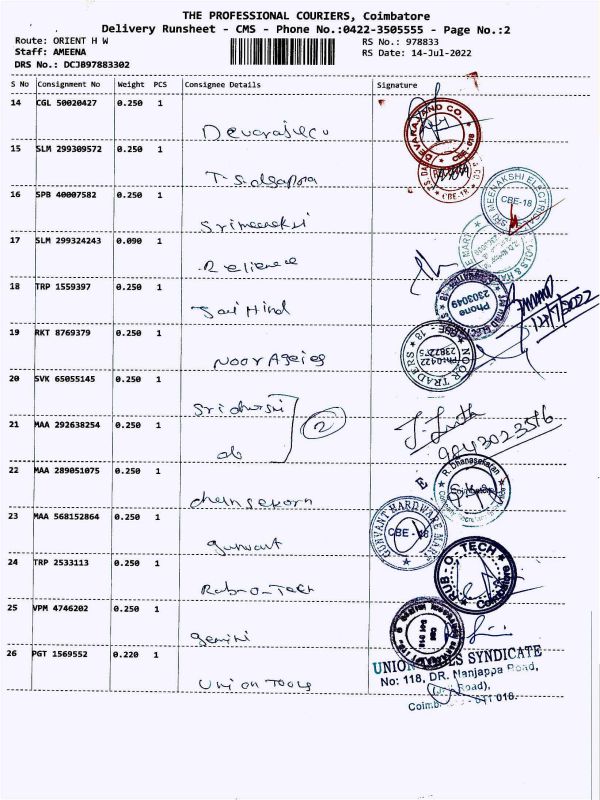 THE PROFESSIONAL COURIERS, Coimbatore
Delivery Runsheet - CMS - Phone No.:0422-3505555 - Page No.:2
Route: ORIENT H W
RS No.: 978833
Staff: AMEENA
RS Date: 14-Jul-2022
DRS No.: DCJB97883302
S No Consignment No Weight PCS Consignee Details Signature
14 CGL 50020427 0.250 1
Devarajulu
DEVARAJ AND CO. CBE-018
15 SLM 299309572 0.250 1
CBE-18
16 SPB 40007582 0.250 1
Srimeenakshi
SRI MEENAKSHI ELECTR CBE-18
17 SLM 299324243 0.090 1
Relience
18 TRP 1559397 0.250 1
Jai Hind
Phone 2303049
14/7/2022
19 RKT 8769379 0.250 1
Noor Agencies
NOOR TRADERS Ph:0422 2387275
20 SVK 65055145 0.250 1
2
21 MAA 292638254 0.250 1
do
9843023516
22 MAA 289051075 0.250 1
R. Dhanasekaran
23 MAA 568152864 0.250 1
gunvant
GUNVANT HARDWARE MART CBE - 18
24 TRP 2533113 0.250 1
Rub-O-Tech
RUB-O-TECH Coimbatore
25 VPM 4746202 0.250 1
gemini
26 PGT 1569552 0.220 1
Union Tools
UNION TOOLS SYNDICATE
No: 118, DR. Nanjappa Road,
Road),
018.